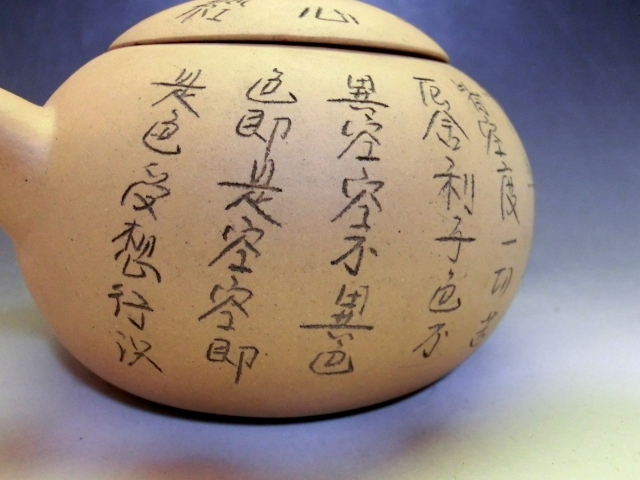 心經
皆空度一切苦
厄舍利子色不
異空空不異色
色即是空空即
是色受想行识